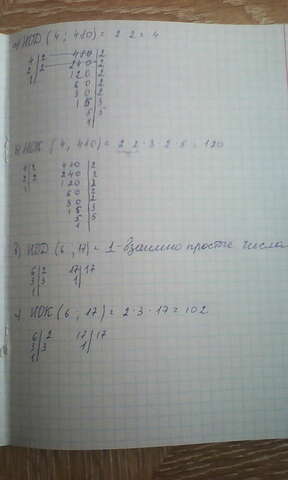 а) НОД (4; 480) = 2 2 = 4
4 | 2 480 | 2
2 | 2 240 | 2
1 120 | 2
60 | 2
30 | 2
15 | 3
5 | 5
1
б) НОК (4, 480) = 2 2 · 3 · 2 · 5 = 120
4 | 2 480 | 2
2 | 2 240 | 2
1 120 | 2
60 | 2
30 | 2
15 | 3
5 | 5
1
в) НОД (6, 17) = 1 - взаимно простые числа
6 | 2 17 | 17
3 | 3 1
1
г) НОК (6, 17) = 2 · 3 · 17 = 102
6 | 2 17 | 17
3 | 3 1
1